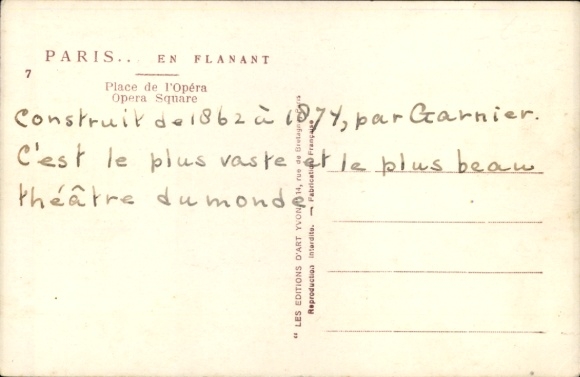 PARIS... EN FLANANT
7
Place de l'Opéra
Opera Square
Construit de 1862 à 1874, par Garnier.
C'est le plus vaste et le plus beau
théâtre du monde
"LES EDITIONS D'ART YVON" 14, rue de Bretagne
Reproduction interdite. — Fabrication Française